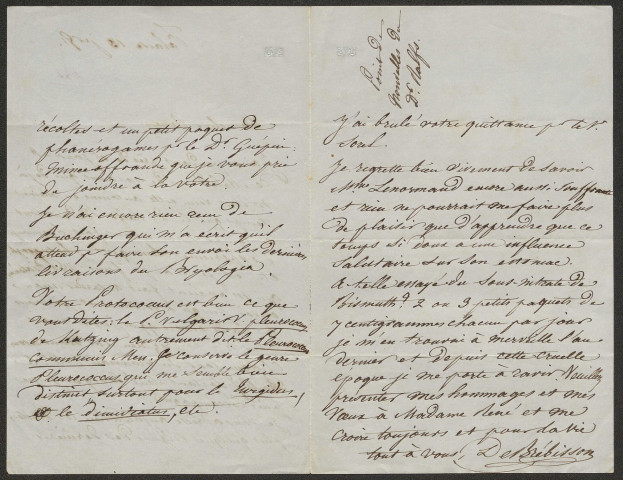 récoltes et un petit paquet de
phanérogames pr le Dr Guépin.
Mince offrande que je vous prie
de joindre à la vôtre.
Je n'ai encore rien reçu de
Buchinger qui m'a écrit qu'il
attend pr faire son envoi les dernières
livraisons du Bryologia.
Votre Protococcus est bien ce que
vous dites: le P. Vulgaris V. pleurococcus
de Kutzing autrement dit le Pleurococcus
communis Men. Je conserve le genre
Pleurococcus qui me semble bien
distinct surtout pour le turgidus,
et le dimidiatus, etc
Point de
nouvelles de
Dr Ralfs.
J'ai brulé votre quittance pr le Vr
Sorel
Je regrette bien vivement de savoir
Mme Lenormand encore aussi souffrante
et rien ne pourrait me faire plus
de plaisir que d'apprendre que ce
temps si doux a une influence
salutaire sur son estomac.
A-t-elle essayé du Sous-nitrate de
Bismuth? 2 ou 3 petits paquets de
7 centigrammes chacun par jour
je m'en trouvai à merveille l'an
dernier et depuis cette cruelle
époque je me porte à ravir. Veuillez
présenter mes hommages et mes
vœux à Madame René et me
croire toujours et pour la vie
tout à vous, De Brébisson